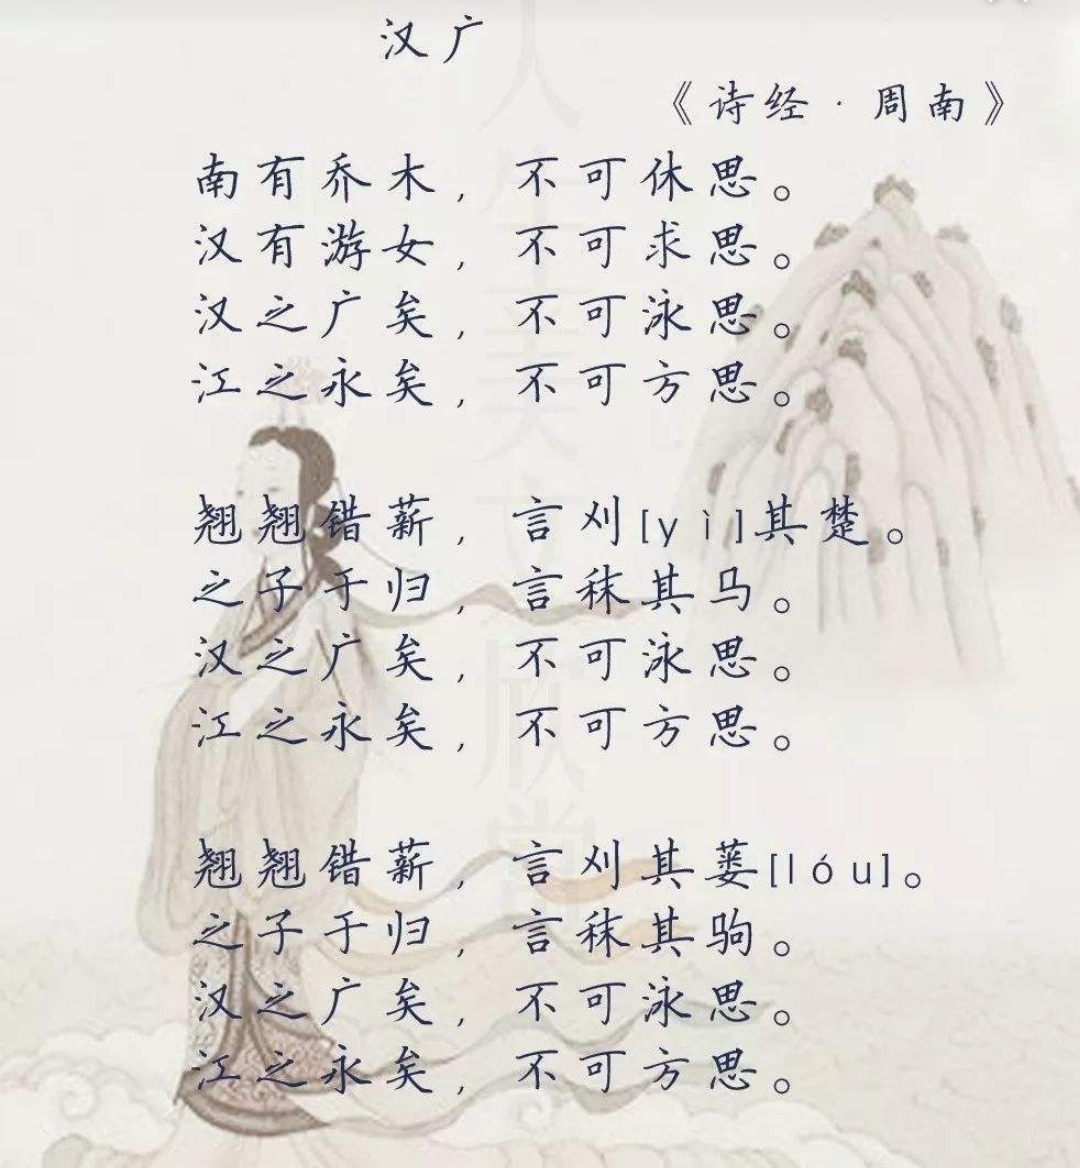 汉广
《诗经·周南》
南有乔木，不可休思。
汉有游女，不可求思。
汉之广矣，不可泳思。
江之永矣，不可方思。
翘翘错薪，言刈[yì]其楚。
之子于归，言秣其马。
汉之广矣，不可泳思。
江之永矣，不可方思。
翘翘错薪，言刈其蒌[lóu]。
之子于归，言秣其驹。
汉之广矣，不可泳思。
江之永矣，不可方思。